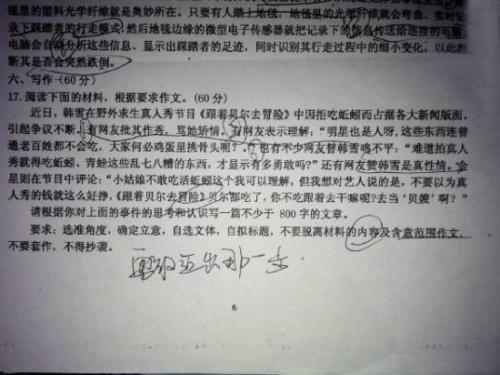 毯里的塑料光学纤维就是奥妙所在。只要有人踏上地毯，地毯里的光学纤维就会弯曲，实时记
录下踩踏者的行走模式，然后地毯边缘的微型电子传感器就把记录下的信息传送给连接的电脑，
电脑会自动分析这些信息，显示出踩踏者的足迹，同时识别其行走过程中的细小变化，以此判
断其是否会突然跌倒。
六、写作(60 分)
17. 阅读下面的材料，根据要求作文。(60 分)
近日，韩雪在野外求生真人秀节目《跟着贝尔去冒险》中因拒吃蚯蚓而占据各大新闻版面，
引起争议不断，有网友批其作秀，骂她矫情，有网友表示理解：“明星也是人呀，这些东西连普
通老百姓都不会吃，大家何必鸡蛋里挑骨头呢？”也有不少网友替韩雪鸣不平：“难道拍真人
秀就得吃蚯蚓、青蛙这些乱七八糟的东西，才显示有多勇敢吗？”还有网友赞韩雪是真性情。
星则在节目中评论：“小姑娘不敢吃活蚯蚓这个我可以理解，但我想对艺人说的是，不要以为真
人秀的钱就这么好挣，《跟着贝尔去冒险》贝尔都吃了，你不吃跟着去干嘛呢？去当‘贝嫂’啊？”
请根据你对上面的事件的思考和认识写一篇不少于 800 字的文章。
要求：选准角度，确定立意，自选文体，自拟标题，不要脱离材料的内容及含意范围作文，
不要套作，不得抄袭。
出那一步
6